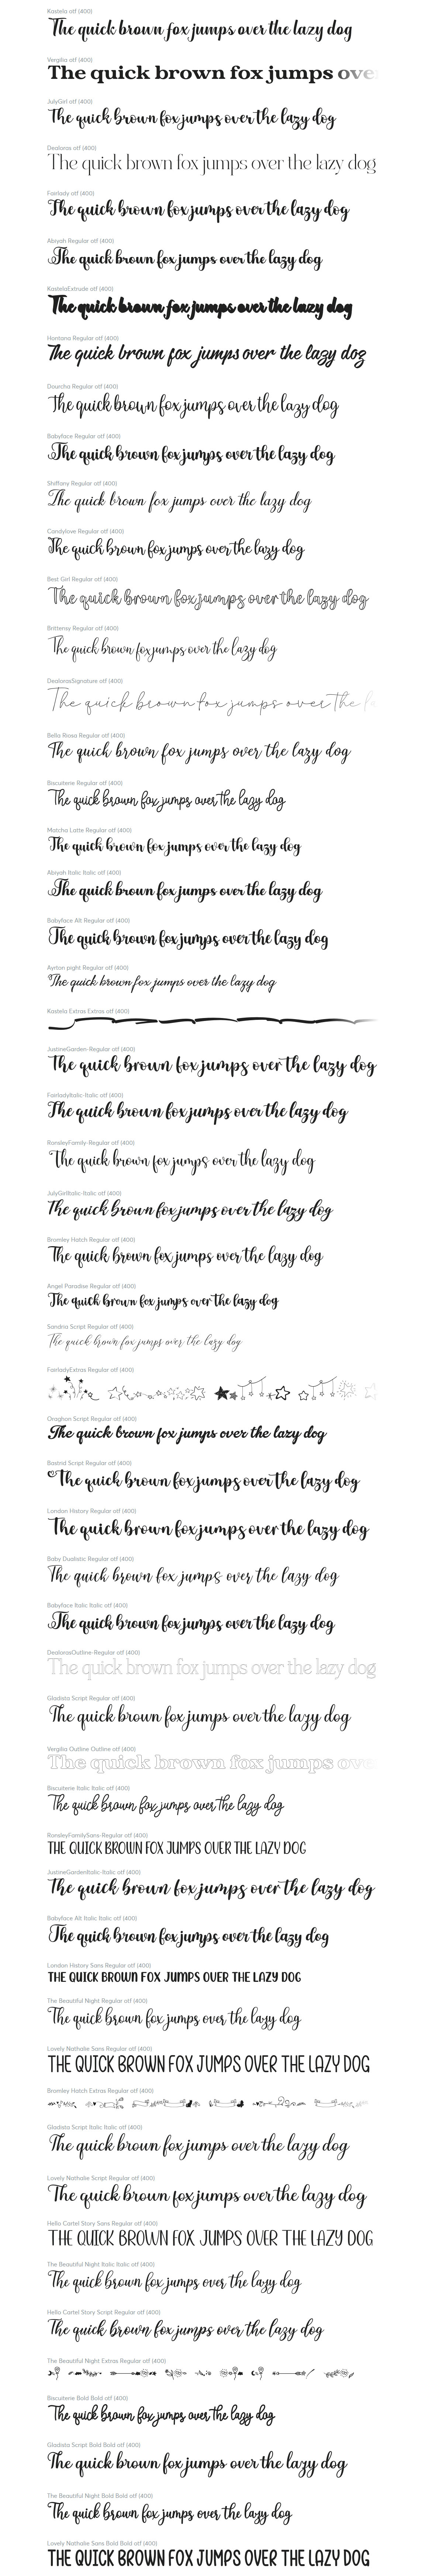 Kastela otf (400)
The quick brown fox jumps over the lazy dog
Vergilia otf (400)
The quick brown fox jumps ove
JulyGirl otf (400)
The quick brown fox jumps over the lazy dog
Dealoras otf (400)
The quick brown fox jumps over the lazy dog
Fairlady otf (400)
The quick brown fox jumps over the lazy dog
Abiyah Regular otf (400)
The quick brown fox jumps over the lazy dog
KastelaExtrude otf (400)
The quick brown fox jumps over the lazy dog
Hantana Regular otf (400)
The quick brown fox jumps over the lazy dog
Dourcha Regular otf (400)
The quick brown fox jumps over the lazy dog
Babyface Regular otf (400)
The quick brown fox jumps over the lazy dog
Shiffany Regular otf (400)
The quick brown fox jumps over the lazy dog
Candylove Regular otf (400)
The quick brown fox jumps over the lazy dog
Best Girl Regular otf (400)
The quick brown fox jumps over the lazy dog
Brittensy Regular otf (400)
The quick brown fox jumps over the lazy dog
DealorasSignature otf (400)
The quick brown fox jumps over the la
Bella Riosa Regular otf (400)
The quick brown fox jumps over the lazy dog
Biscuiterie Regular otf (400)
The quick brown fox jumps over the lazy dog
Matcha Latte Regular otf (400)
The quick brown fox jumps over the lazy dog
Abiyah Italic Italic otf (400)
The quick brown fox jumps over the lazy dog
Babyface Alt Regular otf (400)
The quick brown fox jumps over the lazy dog
Ayrton pight Regular otf (400)
The quick brown fox jumps over the lazy dog
Kastela Extras Extras otf (400)
JustineGarden-Regular otf (400)
The quick brown fox jumps over the lazy dog
FairladyItalic-Italic otf (400)
The quick brown fox jumps over the lazy dog
RansleyFamily-Regular otf (400)
The quick brown fox jumps over the lazy dog
JulyGirlItalic-Italic otf (400)
The quick brown fox jumps over the lazy dog
Bromley Hatch Regular otf (400)
The quick brown fox jumps over the lazy dog
Angel Paradise Regular otf (400)
The quick brown fox jumps over the lazy dog
Sandria Script Regular otf (400)
The quick brown fox jumps over the lazy dog
FairladyExtras Regular otf (400)
Oraghan Script Regular otf (400)
The quick brown fox jumps over the lazy dog
Bastrid Script Regular otf (400)
The quick brown fox jumps over the lazy dog
London History Regular otf (400)
The quick brown fox jumps over the lazy dog
Baby Dualistic Regular otf (400)
The quick brown fox jumps over the lazy dog
Babyface Italic Italic otf (400)
The quick brown fox jumps over the lazy dog
DealorasOultine-Regular otf (400)
The quick brown fox jumps over the lazy dog
Gladista Script Regular otf (400)
The quick brown fox jumps over the lazy dog
Vergilia Outline Outline otf (400)
The quick brown fox jumps ove
Biscuiterie Italic Italic otf (400)
The quick brown fox jumps over the lazy dog
RansleyFamilySans-Regular otf (400)
THE QUICK BROWN FOX JUMPS OVER THE LAZY DOG
JustineGardenItalic-Italic otf (400)
The quick brown fox jumps over the lazy dog
Babyface Alt Italic Italic otf (400)
The quick brown fox jumps over the lazy dog
London History Sans Regular otf (400)
THE QUICK BROWN FOX JUMPS OVER THE LAZY DOG
The Beautiful Night Regular otf (400)
The quick brown fox jumps over the lazy dog
Lovely Nathalie Sans Regular otf (400)
THE QUICK BROWN FOX JUMPS OVER THE LAZY DOG
Bromley Hatch Extras Regular otf (400)
Gladista Script Italic Italic otf (400)
The quick brown fox jumps over the lazy dog
Lovely Nathalie Script Regular otf (400)
The quick brown fox jumps over the lazy dog
Hello Cartel Story Sans Regular otf (400)
THE QUICK BROWN FOX JUMPS OVER THE LAZY DOG
The Beautiful Night Italic Italic otf (400)
The quick brown fox jumps over the lazy dog
Hello Cartel Story Script Regular otf (400)
The quick brown fox jumps over the lazy dog
The Beautiful Night Extras Regular otf (400)
Biscuiterie Bold Bold otf (400)
The quick brown fox jumps over the lazy dog
Gladista Script Bold Bold otf (400)
The quick brown fox jumps over the lazy dog
The Beautiful Night Bold Bold otf (400)
The quick brown fox jumps over the lazy dog
Lovely Nathalie Sans Bold Bold otf (400)
THE QUICK BROWN FOX JUMPS OVER THE LAZY DOG